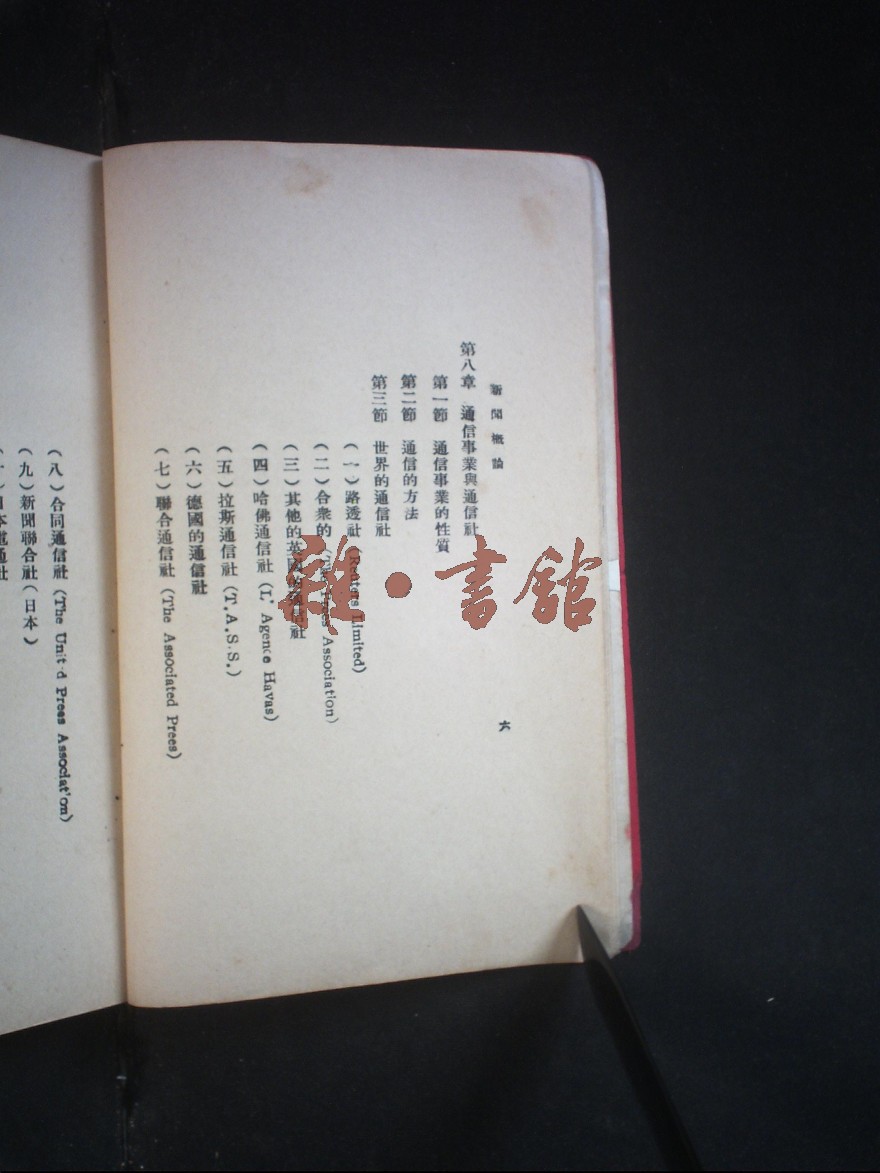 新聞概論
六
第八章 通信事業與通信社
第一節 通信事業的性質
第二節 通信的方法
第三節 世界的通信社
(一)路透社(Reuters Limited)
(二)合衆的 Association)
(三)其他的英國 社
(四)哈佛通信社(L' Agence Havas)
(五)拉斯通信社(T.A.S.S.)
(六)德國的通信社
(七)聯合通信社(The Associated Prees)
(八)合同通信社(The Unit d Prees Associat'on)
(九)新聞聯合社(日本)
雜·書館